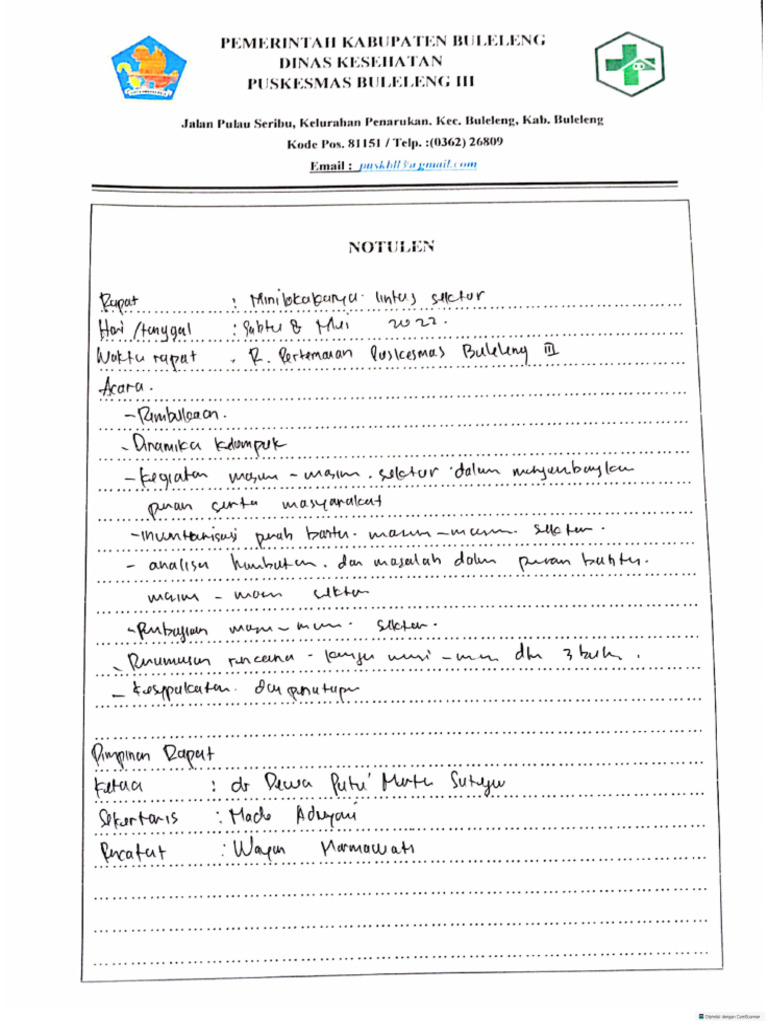 PEMERINTAH KABUPATEN BULELENG
DINAS KESEHATAN
PUSKESMAS BULELENG III
Jalan Pulau Seribu, Kelurahan Penarukan. Kec. Buleleng, Kab. Buleleng
Kode Pos. 81151 / Telp. :(0362) 26809
Email : puskbll3@gmail.com
NOTULEN
Rapat : Minilokakarya lintas sektor
Hari /tanggal : Sabtu 8 Mei 2022.
Waktu rapat : R. Pertemuan Puskesmas Buleleng III
Acara.
- Pembukaan.
- Dinamika Kelompok
- Kegiatan masin - masin. sektor dalam
peran serta masyarakat
- Inventarisasi peran bantu. masin - masin. sektor.
- analisa hambatan. dan masalah dalam peran bantu.
masin - masin sektor
- masin - masin. sektor.
- Perumusan rencana - 3 bulan.
- Kesepakatan. dan penutup
Pimpinan Rapat
Ketua : dr Dewa Putu
Sekertaris : Made Adnyani
Pencatat : Wayan Marmawati
Dipindai dengan CamScanner